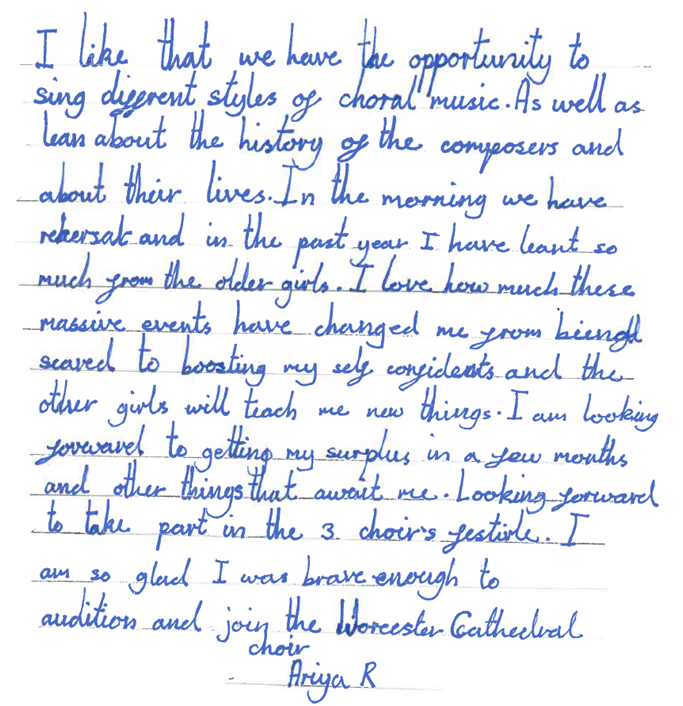 I like that we have the opportunity to
sing different styles of choral music. As well as
lean about the history of the composers and
about their lives. In the morning we have
rehersal and in the past year I have leant so
much from the older girls. I love how much these
massive events have changed me from biend
scared to boosting my self confidents and the
other girls will teach me new things. I am looking
forewared to getting my surplus in a few months
and other things that await me. Looking forward
to take part in the 3 choir's festivle. I
am so glad I was brave enough to
audition and join the Worcester Cathedral
choir
Ariya R